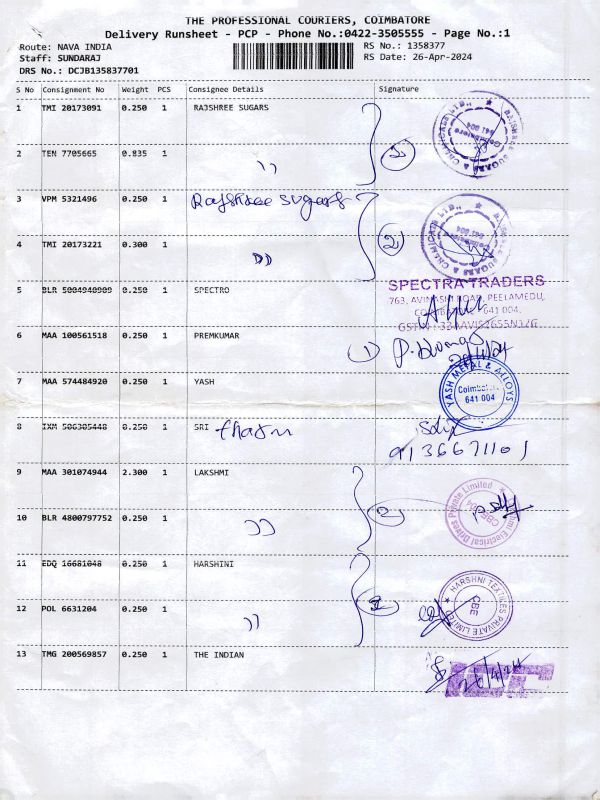 THE PROFESSIONAL COURIERS, COIMBATORE
Delivery Runsheet - PCP - Phone No.:0422-3505555 - Page No.:1
Route: NAVA INDIA
RS No.: 1358377
Staff: SUNDARAJ
RS Date: 26-Apr-2024
DRS No.: DCJB135837701
S No Consignment No Weight PCS Consignee Details Signature
1 TMI 20173091 0.250 1 RAJSHREE SUGARS
2 TEN 7705665 0.835 1 ))
2
3 VPM 5321496 0.250 1 Rajshree sugars
4 TMI 20173221 0.300 1 ))
2
RAJSHREE SUGARS & CHEMICALS LTD., Coimbatore 641 004
5 BLR 5004940909 0.250 1 SPECTRO
SPECTRA TRADERS
763, AVINASHI ROAD, PEELAMEDU,
COIMBATORE - 641 004.
6 MAA 100561518 0.250 1 PREMKUMAR 1 P. Kumar
7 MAA 574484920 0.250 1 YASH
YASH METAL & ALLOYS
Coimbatore
641 004
8 IXM 506305448 0.250 1 SRI
9136671101
9 MAA 301074944 2.300 1 LAKSHMI
10 BLR 4800797752 0.250 1 ))
2
Electrical Drives Private Limited
11 EDQ 16681048 0.250 1 HARSHINI
12 POL 6631204 0.250 1 ))
2
HARSHNI TEXTILES PRIVATE LIMITED
CBE
13 TMG 200569857 0.250 1 THE INDIAN
26/4/24